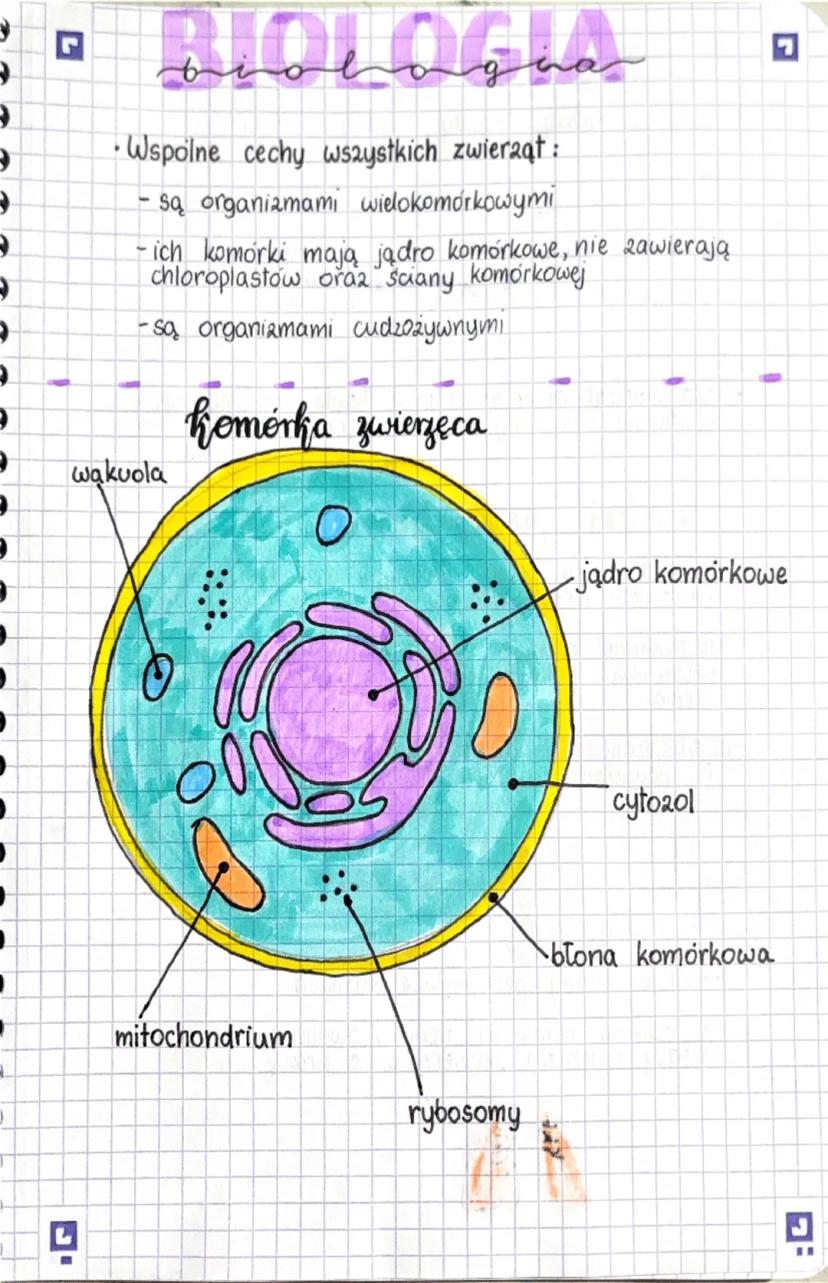 BIOLOGIA
biologia
· Wspólne cechy wszystkich zwierząt:
- są organizmami wielokomórkowymi
- ich komórki mają jądro komórkowe, nie zawierają
chloroplastów oraz ściany komórkowej
- są organizmami cudzożywnymi
komórka zwierzęca
wakuola
jądro komórkowe
cytozol
błona komórkowa
mitochondrium
rybosomy